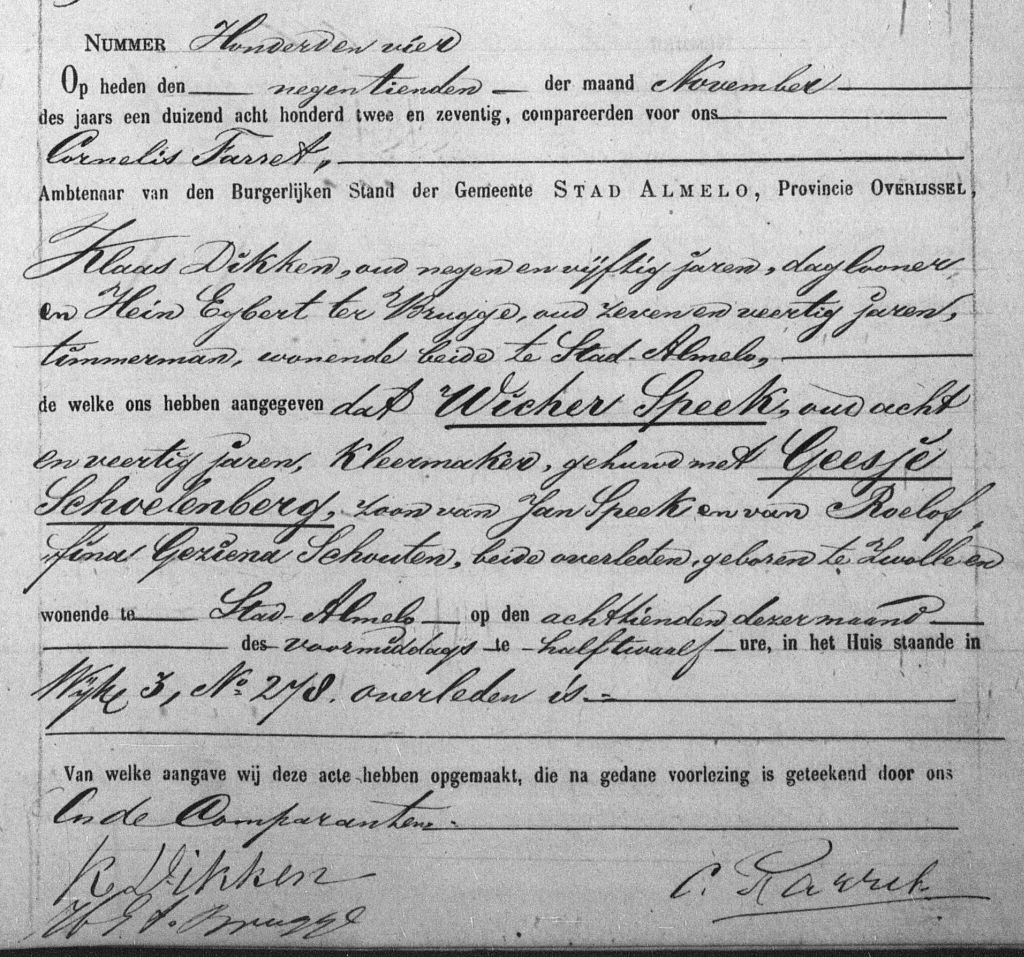 NUMMER Honderd en vier
Op heden den negentienden der maand November
des jaars een duizend acht honderd twee en zeventig, compareerden voor ons
Cornelis Farret,
Ambtenaar van den Burgerlijken Stand der Gemeente STAD ALMELO, Provincie OVERIJSSEL,
Klaas Dikken, oud negen en vijftig jaren, daglooner
en Hein Egbert ter Brugge, oud zeven en veertig jaren,
timmerman, wonende beide te Stad-Almelo,
de welke ons hebben aangegeven dat Wicher Speek, oud acht
en veertig jaren, kleermaker, gehuwd met Geesje
Schoelenberg, zoon van Jan Speek en van Roelof-
fina Geziena Schouten, beide overleden, geboren te Zwolle en
wonende te Stad-Almelo op den achttienden dezer maand
des voormiddags te half twaalf ure, in het Huis staande in
Wijk 3, No 278. overleden is.
Van welke aangave wij deze acte hebben opgemaakt, die na gedane voorlezing is geteekend door ons
en de Comparanten.
K Dikken
H E t. Brugge
C. Farret